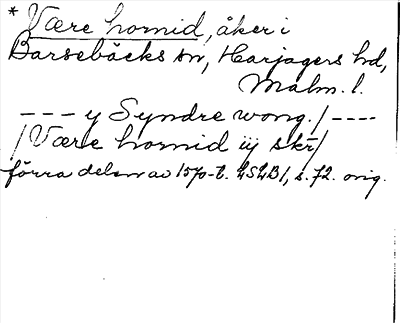 * Være homid, åker i
Barsebäcks sn, Harjagers hd,
Malm. l.
--- y Syndre wong. / ----
/ Være homid iij skr /
förra delen av 1570-t. LSLB1, s. 72. orig.